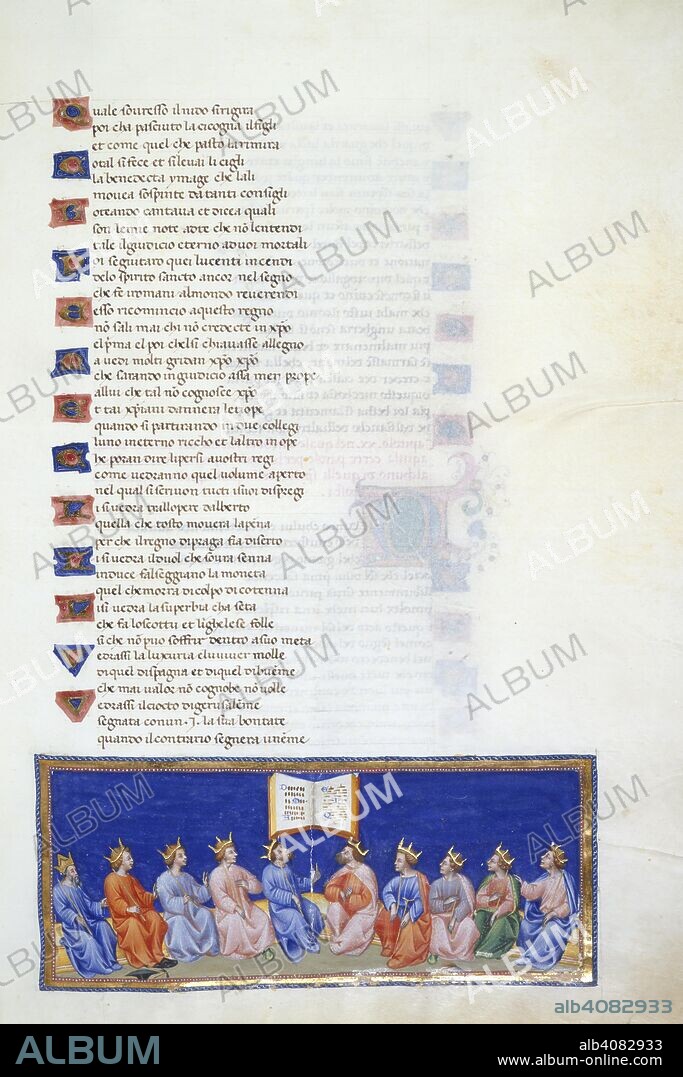 Quale souresso ilnido sirigira
poi cha pasciuto la cicogna ilfigli
et come quel che pasto larimira
Cotal sifece et sileuai li cigli
la benedecta ymage che lali
mouea sospinte da tanti consigli
Roteando cantaua et dicea quali
son lemie note ad te che nō lentendi
tale ilgiudicio eterno aduoi mortali
Poi seguitaro quei lucenti incendi
delo spirito sancto ancor nel segno
che fe iromani almondo reuerendi
Esso ricomincio aquesto regno
nō sali mai chi nō credecte in xp̄o
el pͥma el poi chelsi chiauasse allegno
Ma uedi molti gridan xp̄o xp̄o
che sarando ingiudicio assa men prope
allui che tal nō cognosce xp̄o
E tai xp̄iani dannera letiope
quando si partirando in due collegi
luno ineterno riccho et laltro in ope
Che poran dire lipersi auostri regi
come uedranno quel uolume aperto
nel qual si scriuon tucti isuoi dispregi
Li si uedra trallopere dalberto
quella che tosto mouera la pena
per che ilregno dipraga fia diserto
Li si uedra ilduol che soura senna
induce falseggiano la moneta
quel chemorra dicolpo dicotenna
Li si uedra la superbia cha seta
che fa loscotto et lighelese folle
si che nō puo soffrir dentro asuo meta
Vedrassi la luxuria eluiuer molle
di quel dispagna et di quel dibueme
che mai ualor nō cognobe nō uolle
Vedrassi ilciocto digerusaleme
segnata conun .J. la sua bontate
quando ilcontrario segnera uneme
ALBUM
alb4082933
alb4082933
www.album-online.com